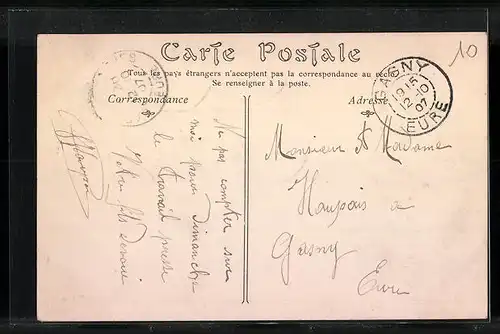 Carte Postale
Tous les pays étrangers n'acceptent pas la correspondance au recto.
Se renseigner à la poste.
Correspondance
Adresse
10
GAGNY
19 15
12 10
07
EURE
Ne pas compter sur
moi pour Dimanche
le travail presse
Votre fils dévoué
Monsieur et Madame
Haupois à
Gasny
Eure